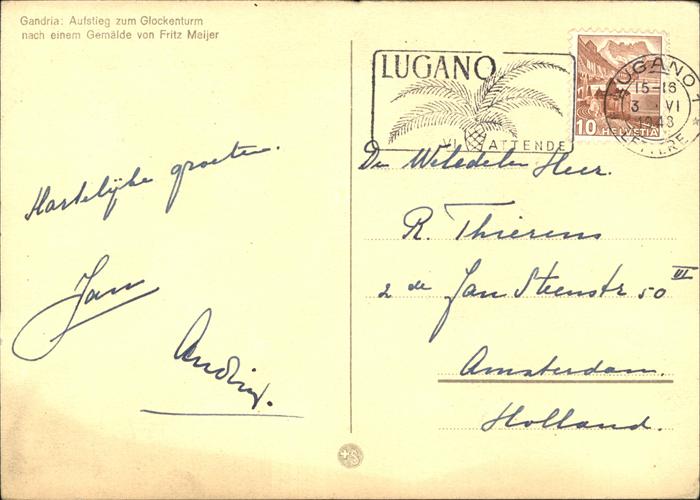 Gandria: Aufstieg zum Glockenturm
nach einem Gemälde von Fritz Meijer
LUGANO
VI ATTENDE
LUGANO 1
15-16
3 VI
1948
LETTERE
10 HELVETIA
Hartelijke groeten.
Jan
Den Weledelen Heer.
R. Thierens
2 de Jan Steenstr 50 III
Amsterdam.
Holland.